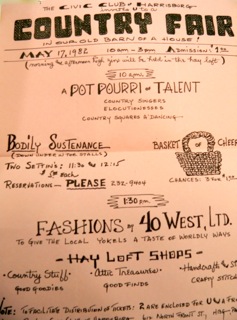 The CIVIC CLUB of HARRISBURG
invites U to a
COUNTRY FAIR
IN OUR OLD BARN OF A HOUSE!
MAY 17, 1982 10am - 3pm ADMISSION
(morning & afternoon high jinx will be held in the hay loft)
10 a.m.
A POT POURRI of TALENT
COUNTRY SINGERS
ELOCUTIONESSES
COUNTRY SQUARES DANCING
BODILY SUSTENANCE...
(DOWN UNDER IN THE STALLS)
TWO SETTINGS: 11:30 & 12:15
Each
RESERVATIONS - PLEASE
BASKET OF CHEER
CHANCES:
1:30 pm
FASHIONS by 40 WEST, LTD.
TO GIVE THE LOCAL YOKELS A TASTE OF WORLDLY WAYS
- HAY LOFT SHOPS -
Country Stuff
GOOD GOODIES
Attic Treasures
GOOD FINDS
Handcrafts
CRAFTY
NOTE: TO FACILITATE DISTRIBUTION OF TICKETS: 2 ARE ENCLOSED FOR U
NORTH FRONT ST.